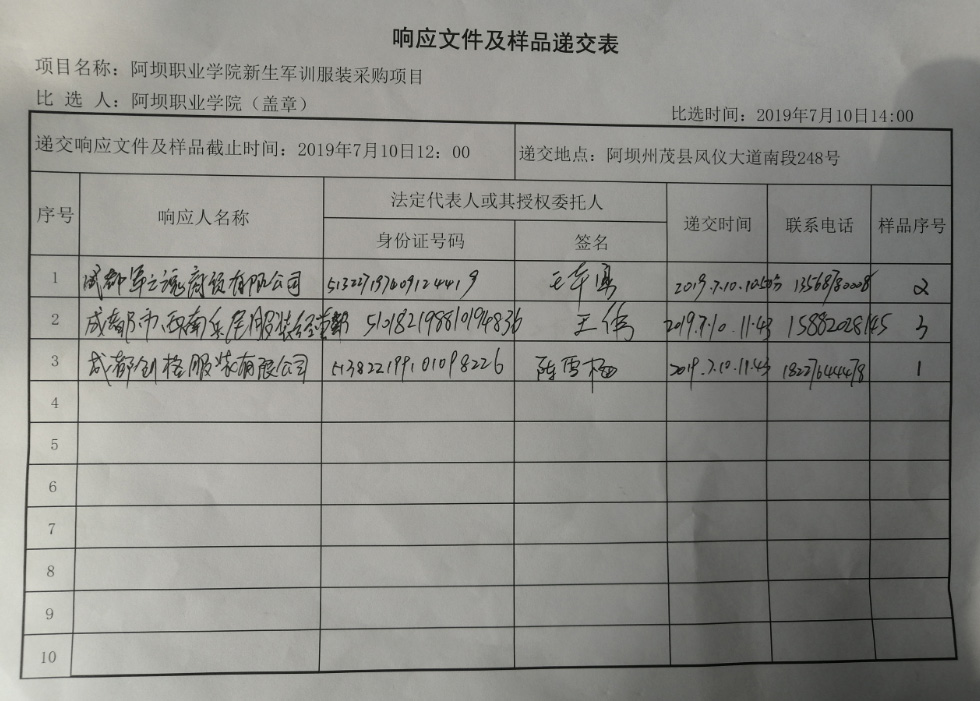 响应文件及样品递交表
项目名称：阿坝职业学院新生军训服装采购项目
比 选 人：阿坝职业学院（盖章）
比选时间：2019年7月10日14:00
递交响应文件及样品截止时间：2019年7月10日12：00 递交地点：阿坝州茂县风仪大道南段248号
序号 响应人名称 法定代表人或其授权委托人 递交时间 联系电话 样品序号
身份证号码 签名
1 成都军之魂商贸有限公司 2019.7.10.10 2
2 成都市西南 服装经营部 510182198810194836 王伟 2019.7.10.11.43 15882028145 3
3 成都创格服装有限公司 513822199101098226 陈雪梅 2019.7.10.11.43 1
4
5
6
7
8
9
10